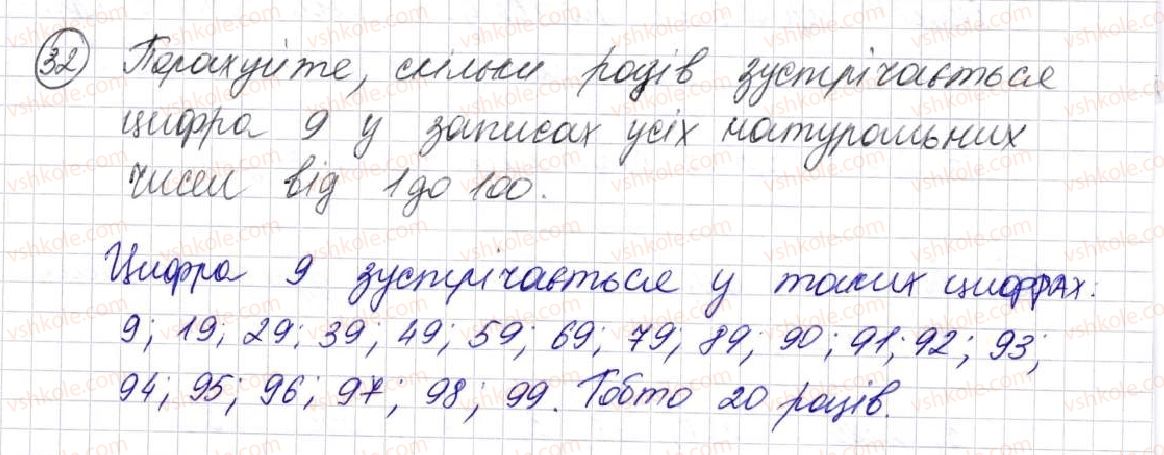 32 Порахуйте, скільки разів зустрічається
цифра 9 у записах усіх натуральних
чисел від 1 до 100.
Цифра 9 зустрічається у таких цифрах:
9; 19; 29; 39; 49; 59; 69; 79; 89; 90; 91; 92; 93;
94; 95; 96; 97; 98; 99. Тобто 20 разів.